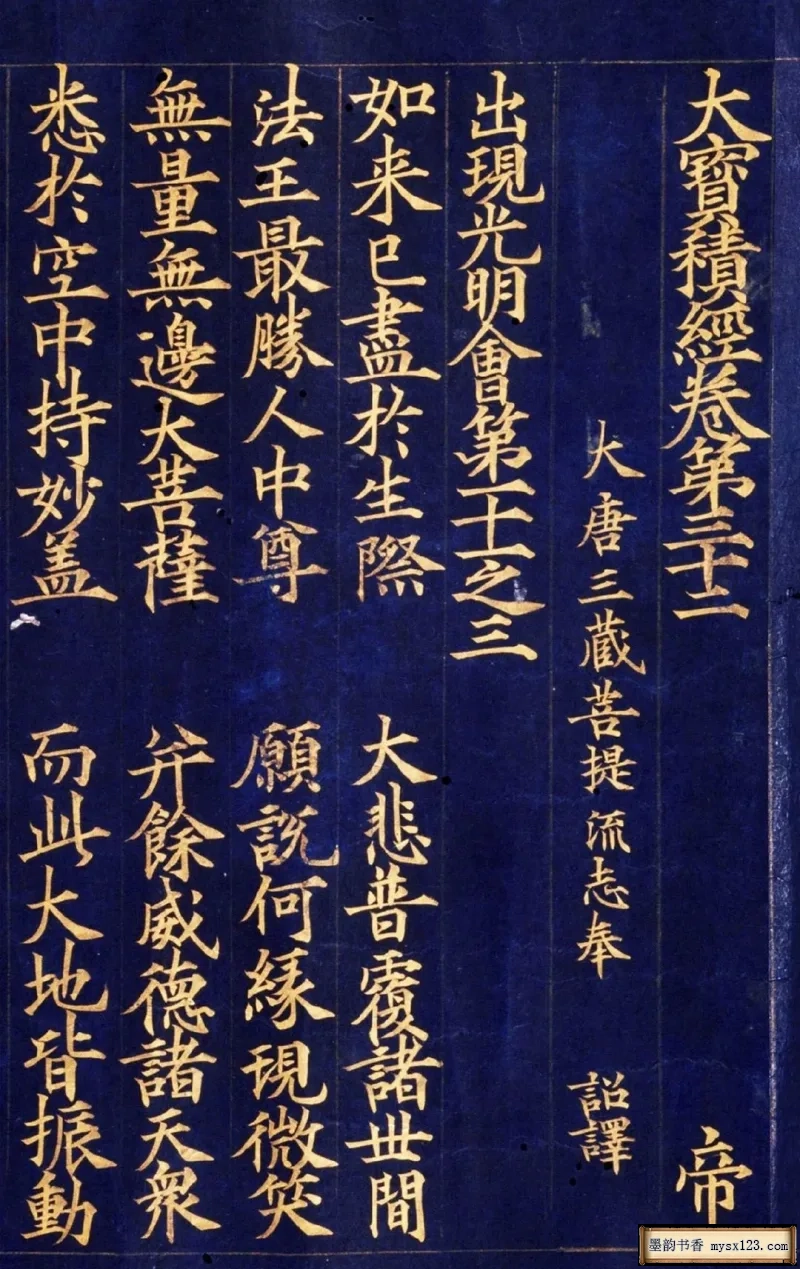 大寶積經卷第三十二 帝
大唐三藏菩提流志奉 詔譯
出現光明會第十一之三
如来已盡於生際 大悲普覆諸世間
法王最勝人中尊 願説何緣現微笑
無量無邊大菩薩 并餘威德諸天衆
悉於空中持妙盖 而此大地皆振動
墨韵书香 mysx123.com